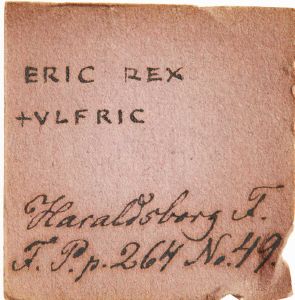 ERIC REX
+VLFRIC
Haraldsborg F.
F. P. p. 264 No. 49